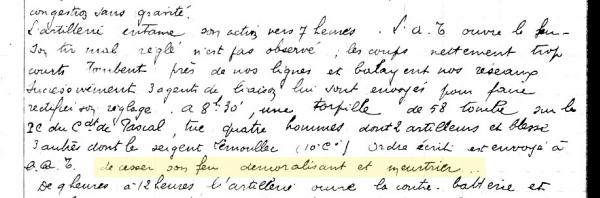 congestion sans gravité.
L'artillerie entame son action vers 7 heures. L'A.T ouvre le feu-
Son tir mal réglé n'est pas observé ; les coups nettement trop
courts tombent près de nos lignes et balayent nos réseaux
Successivement 3 agents de liaison lui sont envoyés pour faire
rectifier son réglage. à 8h30', une torpille de 58 tombe sur le
PC du Cdt de Pascal, tue quatre hommes dont 2 artilleurs et blesse
3 autres dont le sergent (10e Cie) Ordre écrit est envoyé à
A.T. de cesser son feu démoralisant et meurtrier..
De 9 heures à 12 heures l'artillerie ouvre la contre-batterie et